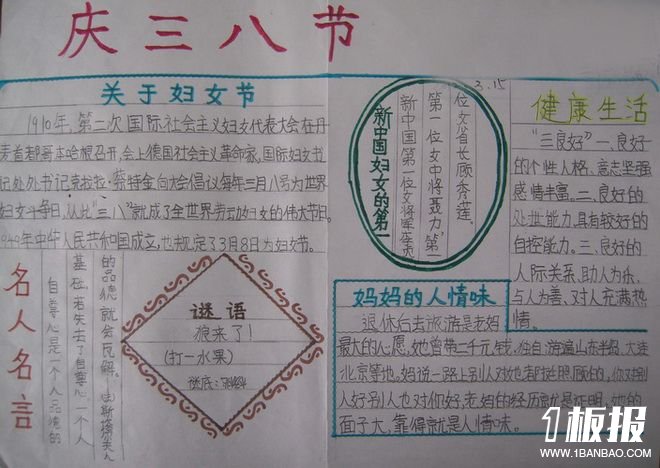 庆三八节
关于妇女节
1910年,第二次国际社会主义妇女代表大会在丹
麦首都哥本哈根召开,会上德国社会主义革命家,国际妇女书
记处处书记克拉拉·蔡特金向大会倡议每年三月八号为世界
妇女斗争日,从此"三八"就成了全世界劳动妇女的伟大节日。
1949年中华人民共和国成立,也规定了3月8日为妇女节。
名人名言
自尊心是一个人品德的
基础,若失去了自尊心,一个人
的品德就会瓦解。
谜语
狼来了!
(打一水果)
谜底:
3.15
新中国妇女的第一
新中国第一位女将军
第一位女中将聂力"第一
位女省长顾秀莲。
健康生活
"三良好"一、良好
的个性人格、意志坚强
感情丰富。二、良好的
处世能力,具有较好的
自控能力。三、良好的
人际关系,助人为乐,
与人为善、对人充满热
情。
妈妈的人情味
退休后去旅游是老妈
最大的心愿,她曾带二千元钱,独自游遍山东半岛、大连
北京等地。妈说一路上别人对她都挺照顾的,你对别
人好别人也对你好,老妈的经历就是证明,她的
面子大,靠得就是人情味。
1板报
WWW.1BANBAO.COM